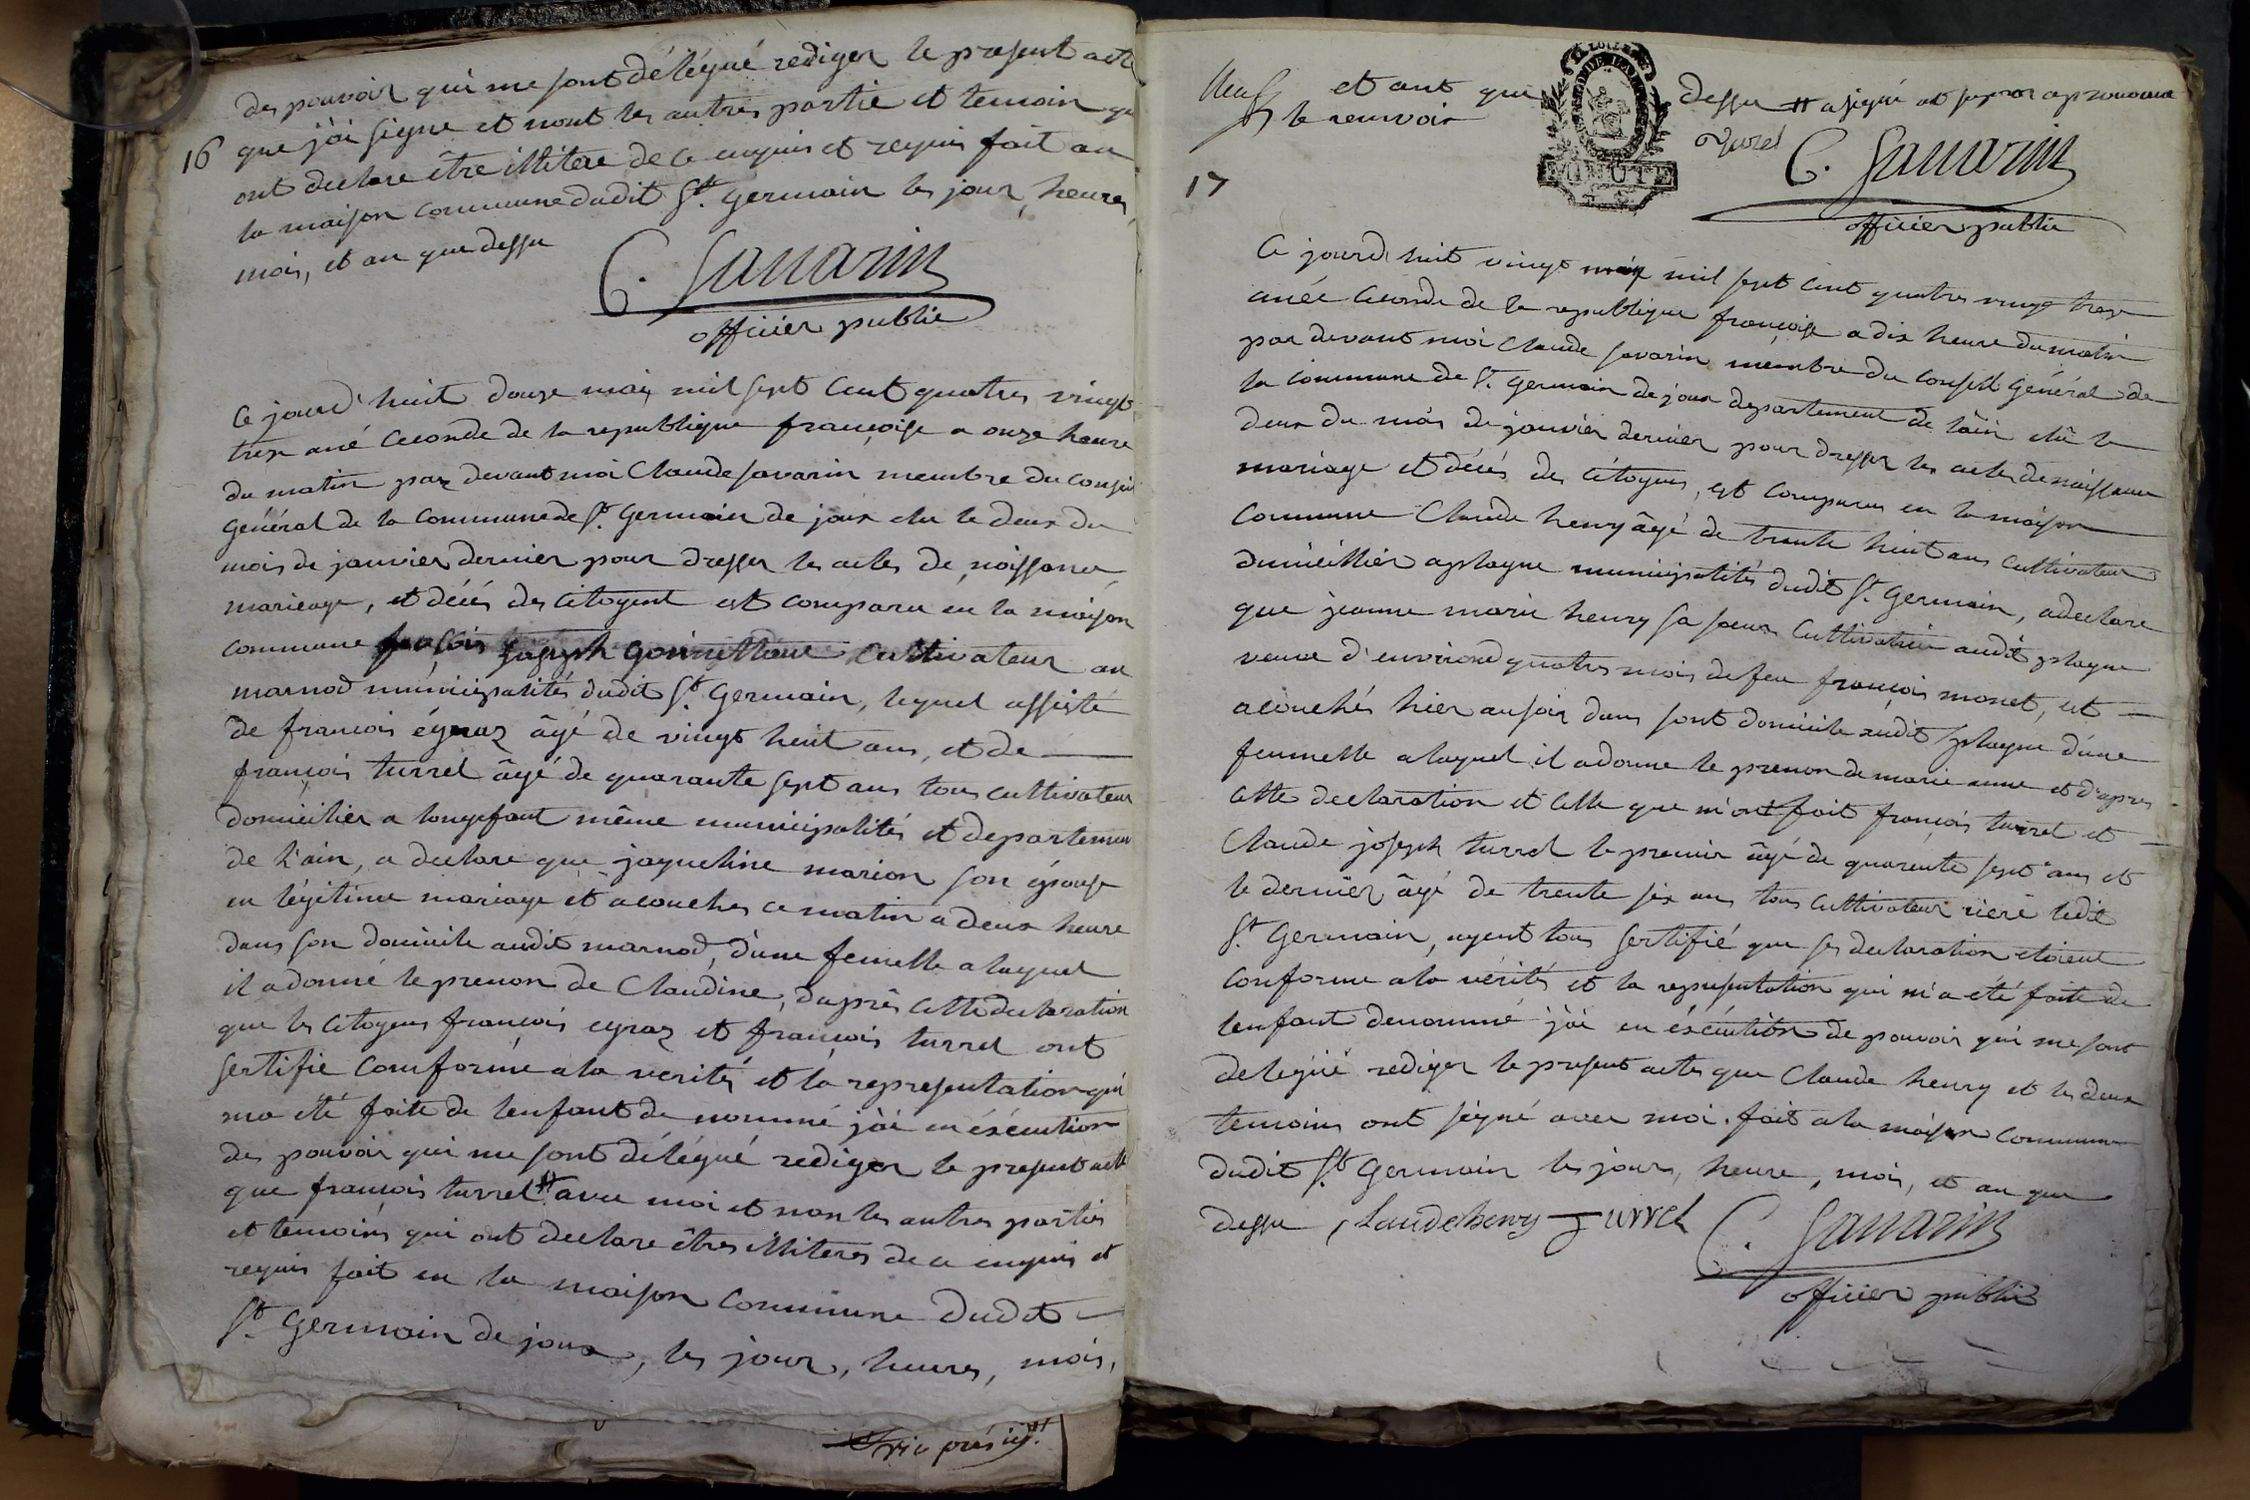 des pouvoir qui me sont délégué rediger le present acte
16
que j'ai signe et nont les autres partie et temoin qui
ont declare être illitere de ce enquis et requis fait au
la maison commune dudit St. Germain les jour, heures,
mois, et an que dessu
C. Savarin
officier public
Ce jourd'huit douze mais mil sept cent quatres vingt
tres ané seconde de la republique françoise a onze heure
du matin par devant moi Claude Savarin membre du conseil
général de la commune de St. Germain de joux elu le deux du
mois de janvier dernier pour dresser les actes de noissance
marieage, et décés des citoyent est comparu en la maison
commune joseph cultivateur au
marnod municipalités dudit St. Germain, lequel assisté
de francois égraz âgé de vingt huit ans, et de
françois turrel âgé de quarante sept ans tous cultivateur
domicilier a longefant même municipalités et departement
de l'ain, a declare que jaqueline marion son épouse
en légitime mariage et acouches ce matin a deux heure
dans son domicile audit marnod, d'une femelle a laquel
il a donné le prenon de Claudine, d'aprês cette declaration
que les citoyens francois egraz et françois turrel ont
sertifié comformé a la verités et la representation qui
ma été faite de lenfant de nommé j'ài en éxécution
des pouvoir qui me sont délégué rediger le present acte
que francois turrel # avec moi et non les autres parties
et temoins qui ont declare êtres illiteres de ce enquis et
requis fait en la maison commune dudit
St. Germain de joux, les jour, heures, mois,
Neuf
et ant que dessu # a signé et
le renvoir
turel
C. Savarin
officier public
17
Ce jourd'huit vingt mai mil sept cent quatres vingt trese
anée seconde de la republique françoise a dix heure du matin
par devant moi Claude savarin membre du conseil général de
la commune de St. Germain de joux departement de l'ain elû le
deux du mois de janvier dernier pour dresser les actes de naissance
mariage et décés des citoyens, est comparu en la maison
commune Claude henry âgé de trente huit ans cultivateur
dumicillier a plagne municipalités dudit St. Germain, a declare
que jeanne marie henry sa soeur cultivatrice audit plagne
veuve d'environd quatres mois de feu françois monet, est
acouchés hier au soir dans sont domicile audit plagne d'une
femmelle a laquel il a donne le prenon de marie anne et d'apres
cette declaration et celle que m'ont fait françois turrel et
Claude joseph turrel le premier âgé de quarente sept ans et
le dernier âgé de trente six ans tous cultivateur riere ledit
St. Germain, ayent tous sertifié que ses declaration etoient
conforme a la vérités et la representation qui m'a eté faite de
lenfant denommé j'ài en éxécution de pouvoir qui me sont
deleguè rediger le present actes que Claude henry et les deux
temoins ont signé avec moi. fait a la maison commune
dudit St. Germain les jours, heure, mois, et an que
dessu Claude henry Turrel C. Savarin
officier public